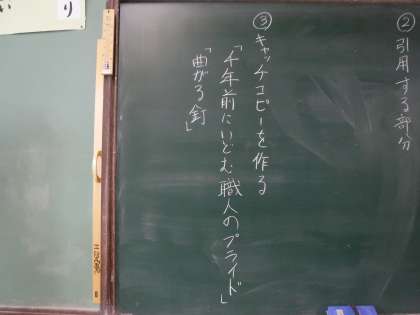 ② 引用する部分
③ キャッチコピーを作る
「千年前にいどむ職人のプライド」
「曲がる釘」
り
い